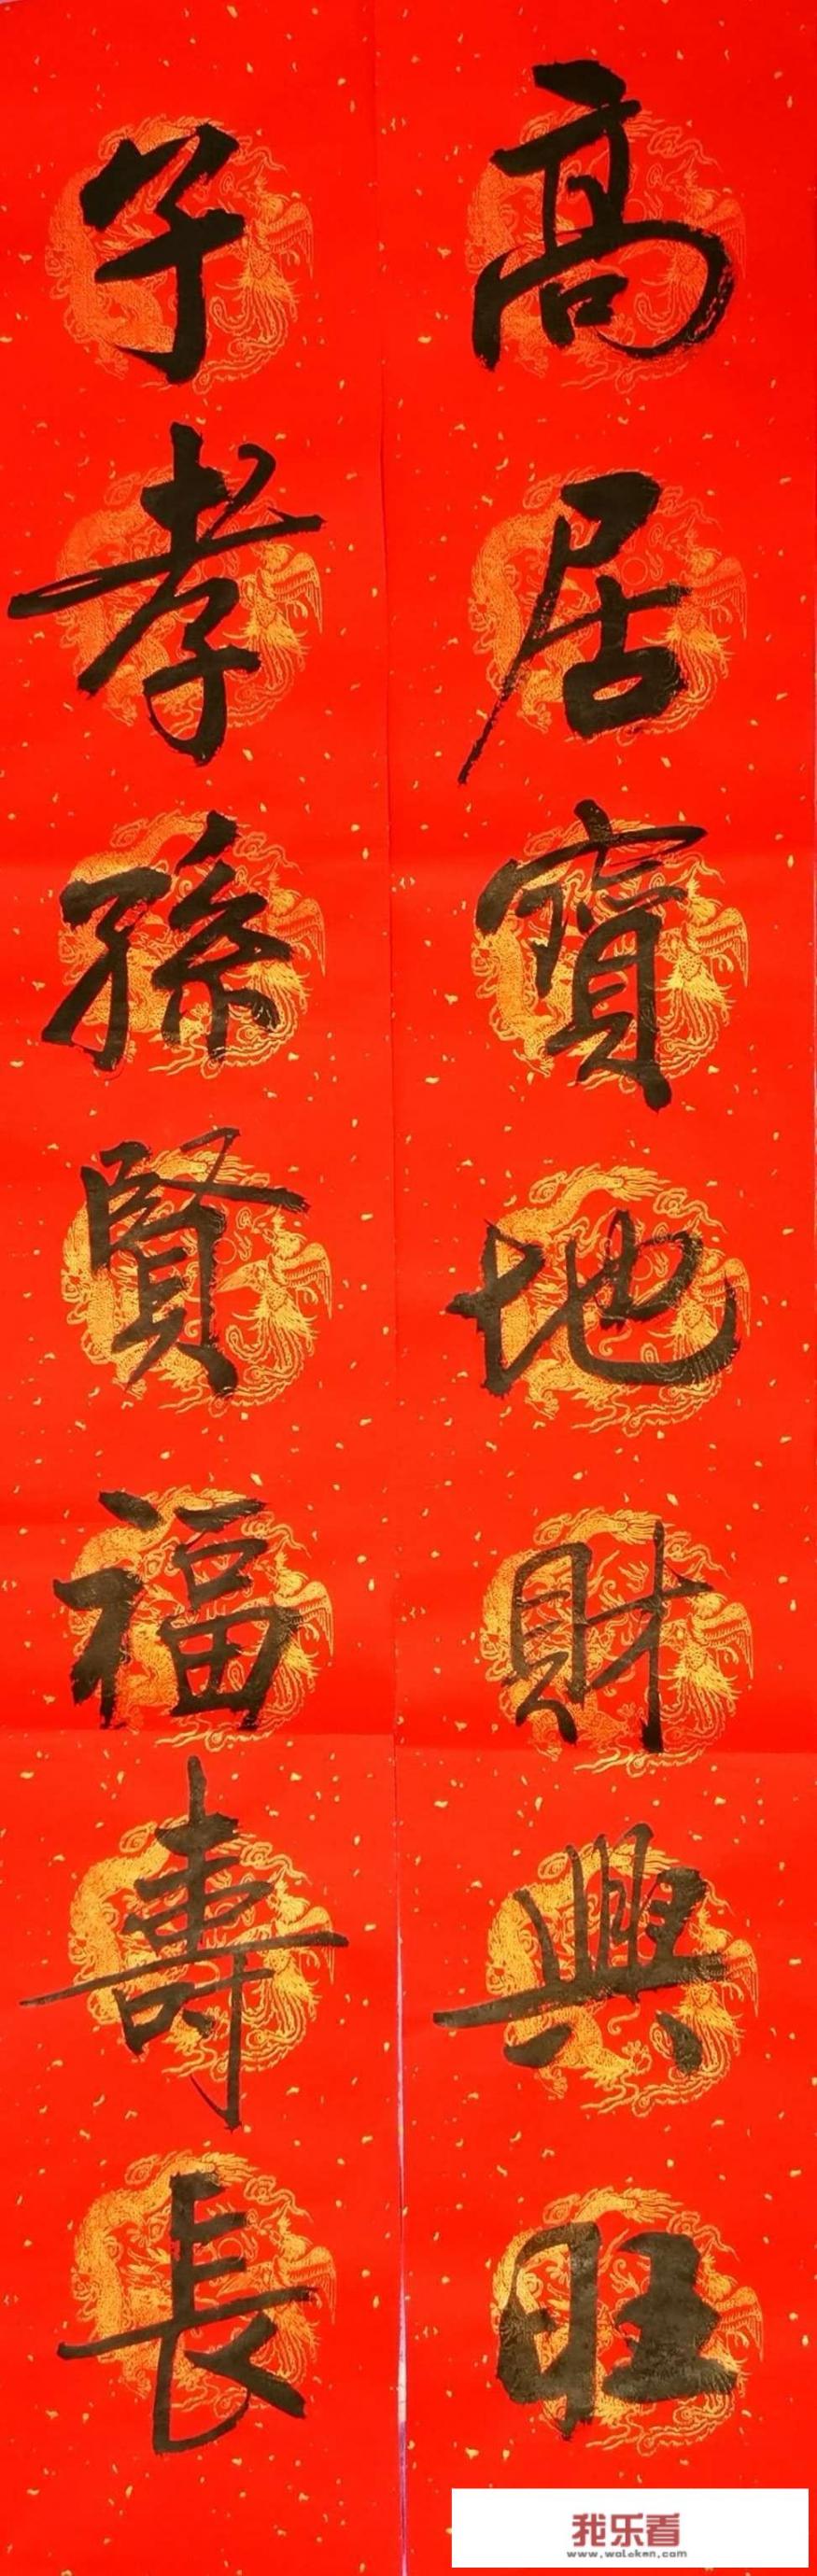 高居寶地財興旺
子孝孫賢福壽長
我乐看
www.woleken.com